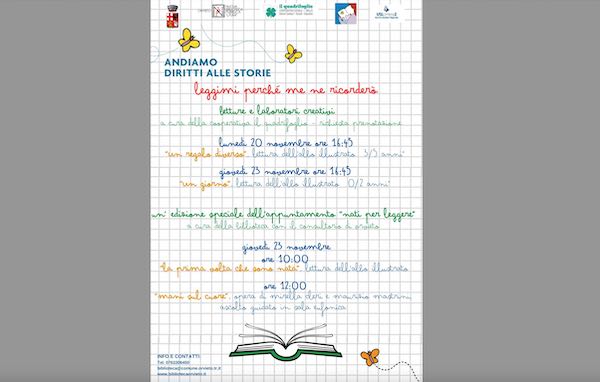 il quadrifoglio
ANDIAMO
DIRITTI ALLE STORIE
leggimi perché me ne ricorderò
letture e laboratori creativi
a cura della cooperativa il quadrifoglio - richiesta prenotazione
lunedì 20 novembre ore 16:45
"un regalo diverso", lettura dell'albo illustrato 3/5 anni
giovedì 23 novembre ore 16:45
"un giorno", lettura dell'albo illustrato 0/2 anni
un' edizione speciale dell'appuntamento "nati per leggere"
a cura della biblioteca con il consultorio di orvieto
giovedì 23 novembre
ore 10:00
"la prima volta che sono nata", lettura dell'albo illustrato
ore 12:00
"mani sul cuore", opera di mirella cleri e maurizio mastrini
ascolto guidato in sala eufonica
INFO E CONTATTI
Tel. 0763306450
biblioteca@comune.orvieto.tr.it
www.bibliotecaorvieto.it